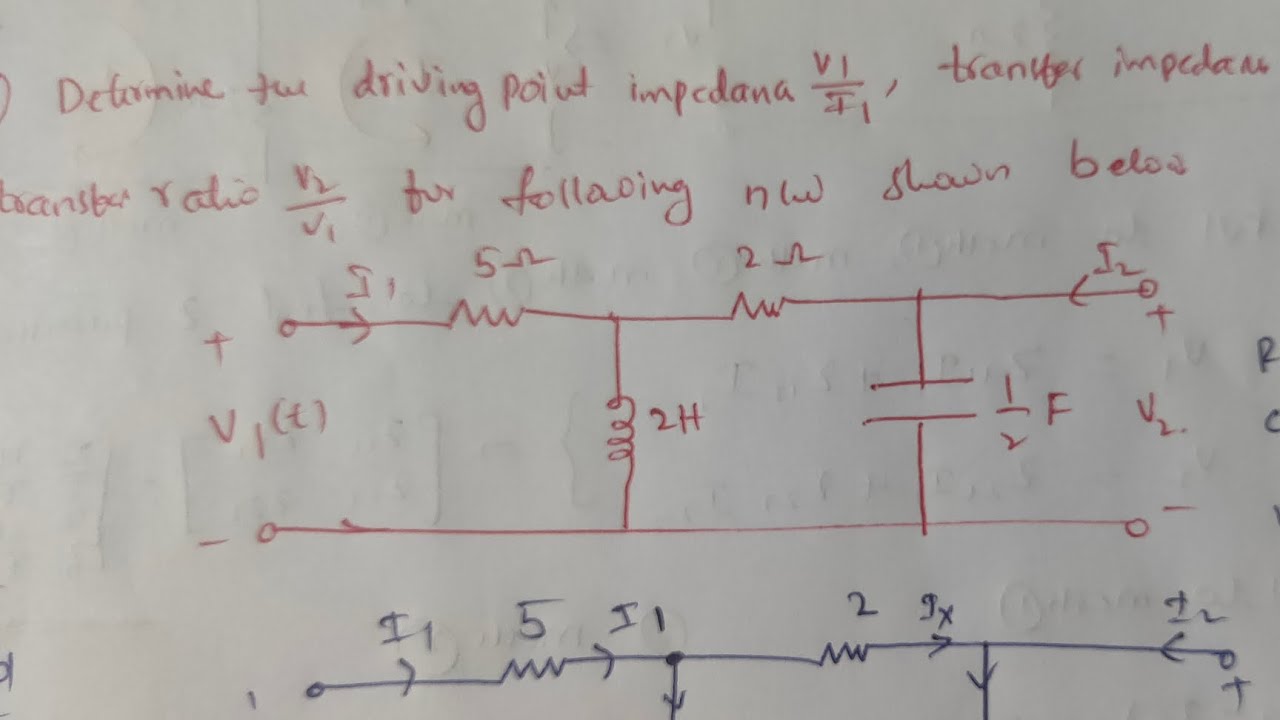 ) Determine the driving point impedana V1/I1, transfer impedan
transfer ratio V2/V1 for following n/w shown below
I1 5Ω 2Ω I2
+ +
V1(t) 2H 1/2 F V2.
- -
I1 5 I1 2 Ix I2
+